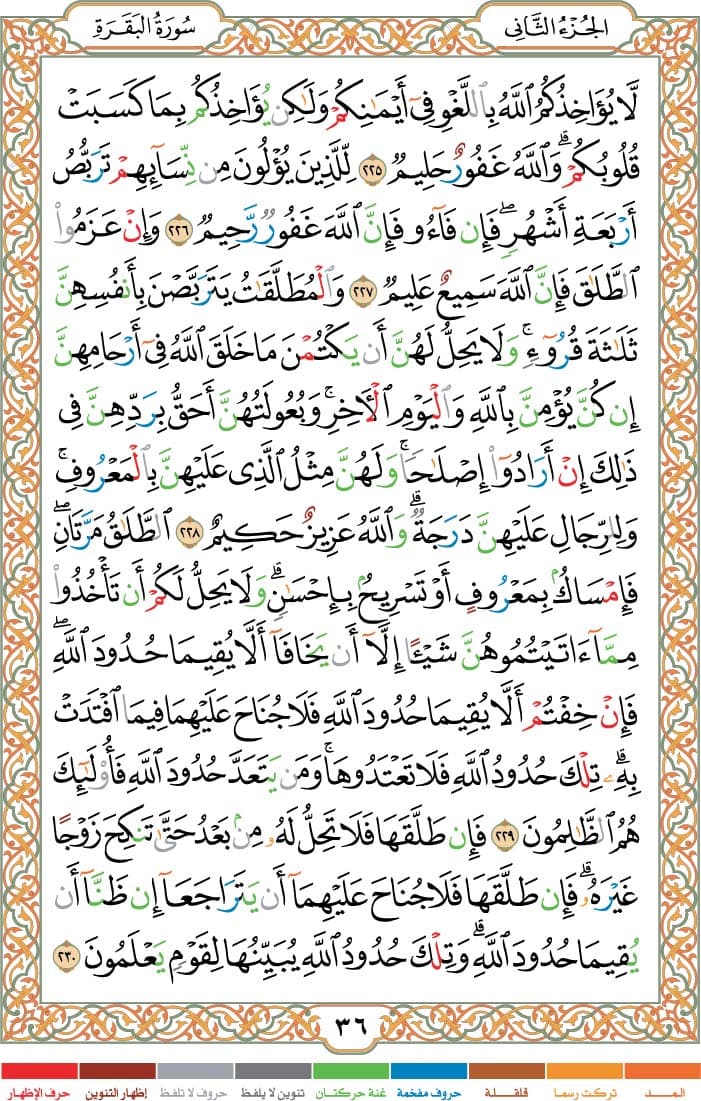 الجُزْءُ الثَّانِي
سُورَةُ البَقَرَةِ
لَّا يُؤَاخِذُكُمُ ٱللَّهُ بِٱللَّغْوِ فِىٓ أَيْمَٰنِكُمْ وَلَٰكِن يُؤَاخِذُكُم بِمَا كَسَبَتْ
قُلُوبُكُمْ ۗ وَٱللَّهُ غَفُورٌ حَلِيمٌ ٢٢٥ لِّلَّذِينَ يُؤْلُونَ مِن نِّسَآئِهِمْ تَرَبُّصُ
أَرْبَعَةِ أَشْهُرٍ ۖ فَإِن فَآءُو فَإِنَّ ٱللَّهَ غَفُورٌ رَّحِيمٌ ٢٢٦ وَإِنْ عَزَمُوا۟
ٱلطَّلَٰقَ فَإِنَّ ٱللَّهَ سَمِيعٌ عَلِيمٌ ٢٢٧ وَٱلْمُطَلَّقَٰتُ يَتَرَبَّصْنَ بِأَنفُسِهِنَّ
ثَلَٰثَةَ قُرُوٓءٍ ۚ وَلَا يَحِلُّ لَهُنَّ أَن يَكْتُمْنَ مَا خَلَقَ ٱللَّهُ فِىٓ أَرْحَامِهِنَّ
إِن كُنَّ يُؤْمِنَّ بِٱللَّهِ وَٱلْيَوْمِ ٱلْأَخِرِ ۚ وَبُعُولَتُهُنَّ أَحَقُّ بِرَدِّهِنَّ فِى
ذَٰلِكَ إِنْ أَرَادُوٓا۟ إِصْلَٰحًا ۚ وَلَهُنَّ مِثْلُ ٱلَّذِى عَلَيْهِنَّ بِٱلْمَعْرُوفِ ۚ
وَلِلرِّجَالِ عَلَيْهِنَّ دَرَجَةٌ ۗ وَٱللَّهُ عَزِيزٌ حَكِيمٌ ٢٢٨ ٱلطَّلَٰقُ مَرَّتَانِ ۖ
فَإِمْسَاكٌۢ بِمَعْرُوفٍ أَوْ تَسْرِيحٌۢ بِإِحْسَٰنٍ ۗ وَلَا يَحِلُّ لَكُمْ أَن تَأْخُذُوا۟
مِمَّآ ءَاتَيْتُمُوهُنَّ شَيْـًٔا إِلَّآ أَن يَخَافَآ أَلَّا يُقِيمَا حُدُودَ ٱللَّهِ ۖ
فَإِنْ خِفْتُمْ أَلَّا يُقِيمَا حُدُودَ ٱللَّهِ فَلَا جُنَاحَ عَلَيْهِمَا فِيمَا ٱفْتَدَتْ
بِهِۦ ۗ تِلْكَ حُدُودُ ٱللَّهِ فَلَا تَعْتَدُوهَا ۚ وَمَن يَتَعَدَّ حُدُودَ ٱللَّهِ فَأُو۟لَٰٓئِكَ
هُمُ ٱلظَّٰلِمُونَ ٢٢٩ فَإِن طَلَّقَهَا فَلَا تَحِلُّ لَهُۥ مِنۢ بَعْدُ حَتَّىٰ تَنكِحَ زَوْجًا
غَيْرَهُۥ ۗ فَإِن طَلَّقَهَا فَلَا جُنَاحَ عَلَيْهِمَآ أَن يَتَرَاجَعَآ إِن ظَنَّآ أَن
يُقِيمَا حُدُودَ ٱللَّهِ ۗ وَتِلْكَ حُدُودُ ٱللَّهِ يُبَيِّنُهَا لِقَوْمٍ يَعْلَمُونَ ٢٣٠
٣٦
المـــد تركت رسما قلقـلـة حروف مفخمة غنة حركتان تنوين لا يلفظ حروف لا تلفظ إظهار التنوين حرف الإظهار